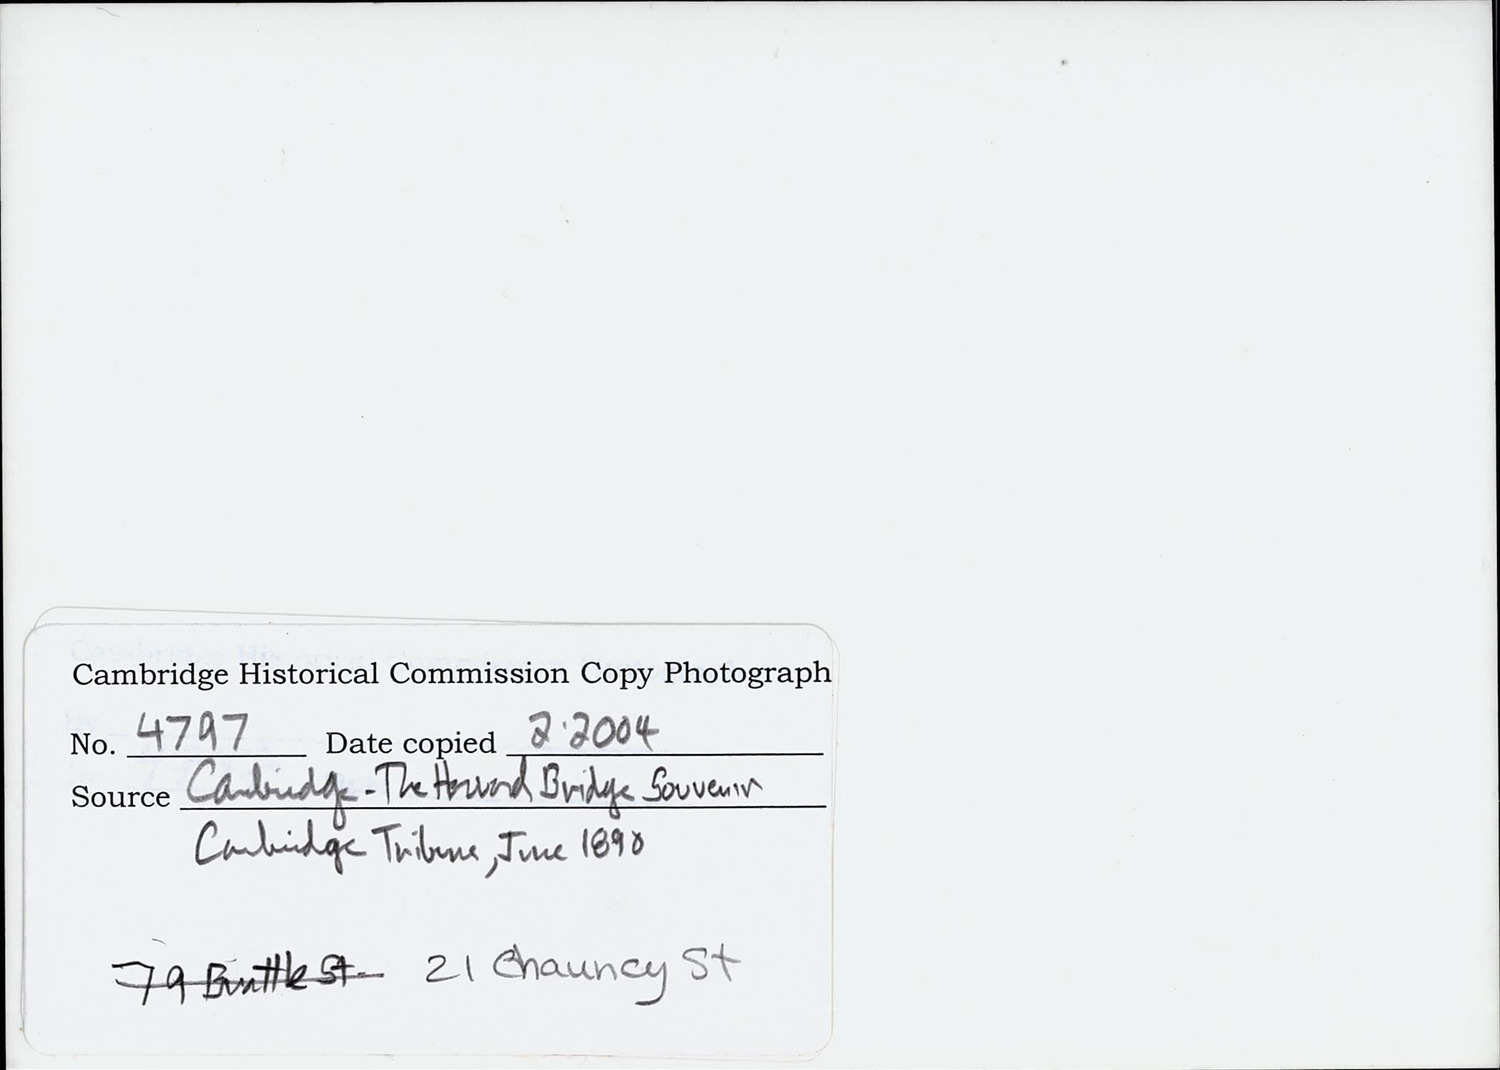 Cambridge Historical Commission Copy Photograph
No. 4797 Date copied 2.2004
Source Cambridge - The Harvard Bridge Souvenir
Cambridge Tribune, June 1890
79 Brattle St. 21 Chauncy St